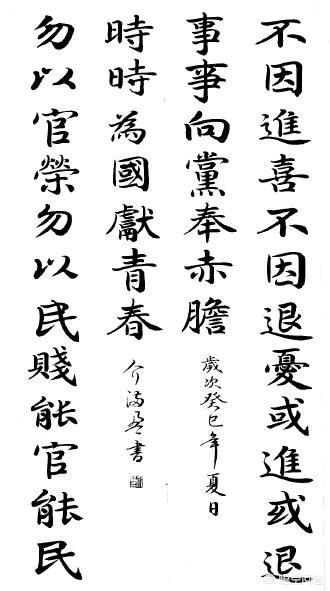 不因進喜不因退憂或進或退
事事向黨奉赤膽
歲次癸巳年夏日
勿以官榮勿以民賤能官能民
時時為國獻青春
介書